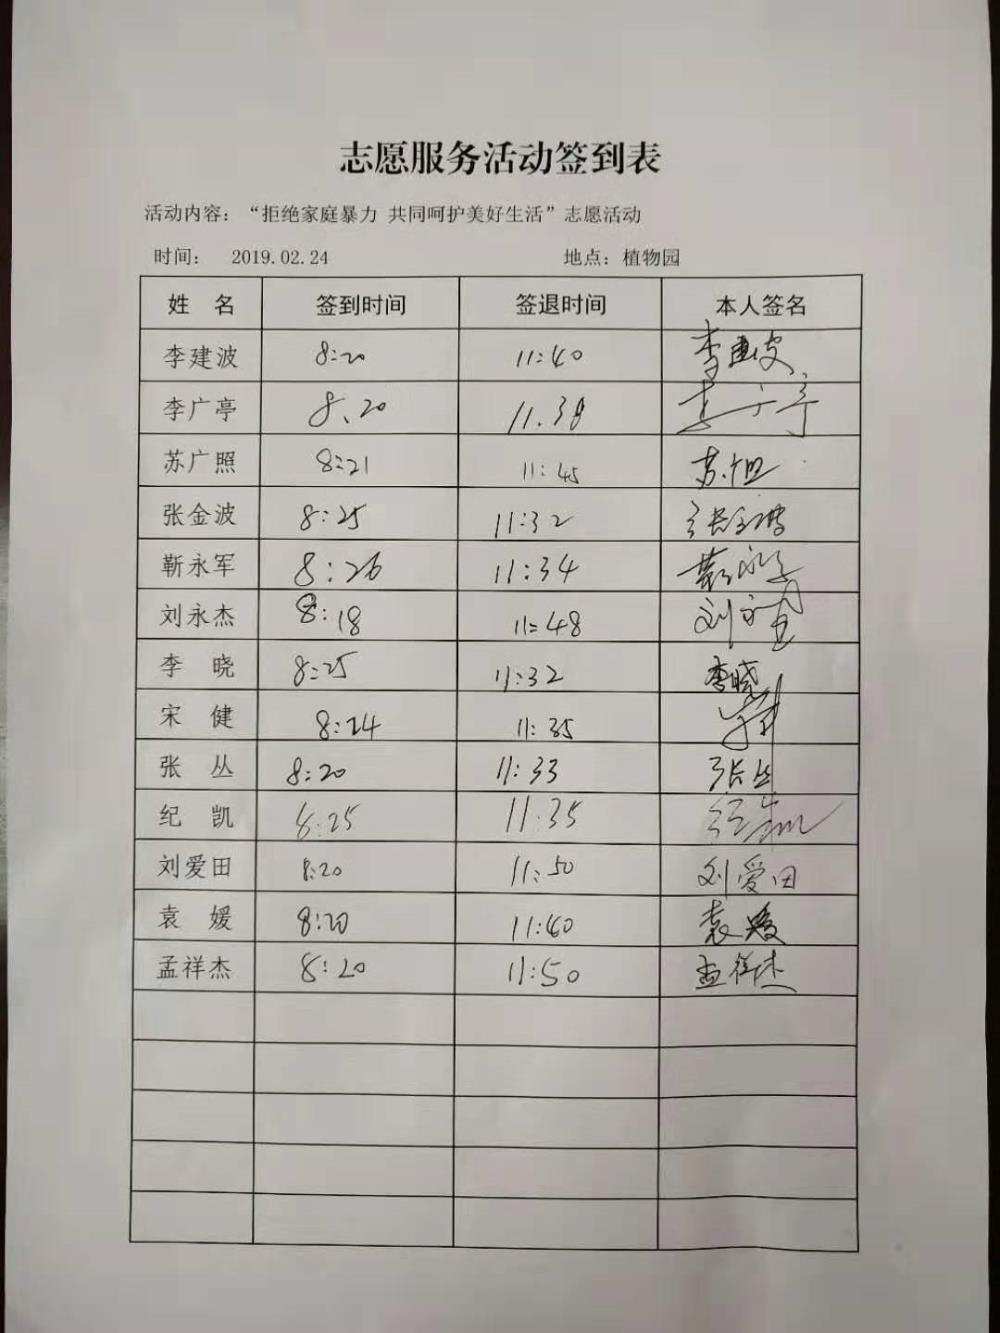 志愿服务活动签到表
活动内容：“拒绝家庭暴力 共同呵护美好生活”志愿活动
时间： 2019.02.24 地点：植物园
姓 名 签到时间 签退时间 本人签名
李建波 8:20 11:40 李建波
李广亭 8.20 11.38 李广亭
苏广照 8:21 11:45 苏
张金波 8:25 11:32 张金波
靳永军 8:26 11:34 靳永军
刘永杰 8:18 11:48 刘永杰
李 晓 8:25 11:32 李晓
宋 健 8:24 11:35
张 丛 8:20 11:33 张丛
纪 凯 8:25 11.35 纪凯
刘爱田 8:20 11:50 刘爱田
袁 媛 8:20 11:40 袁媛
孟祥杰 8:20 11:50 孟祥杰